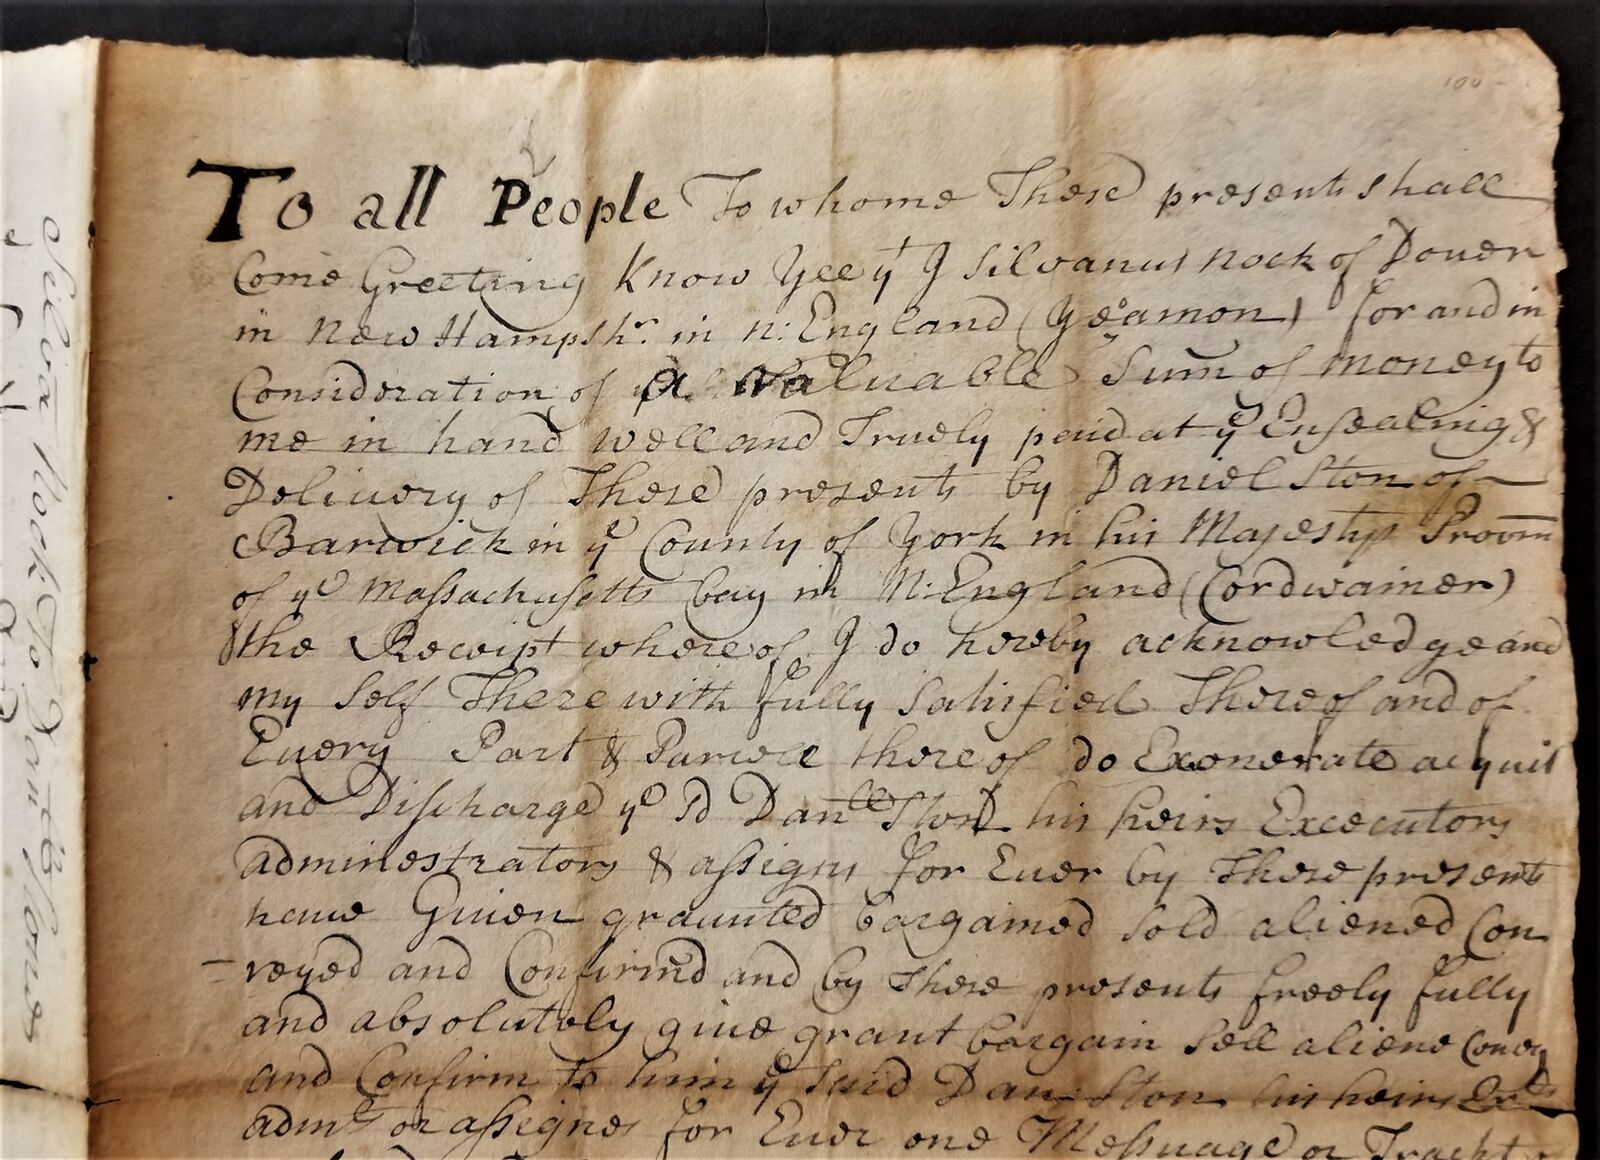 100
To all People To whome These presents shall
Come Greeting Know Yee yt I Silvanus Nock of Dover
in New Hampshr. in N: England (Yeoamon) for and in
Consideration of a Valuable Sum of money to
me in hand well and Truely paid at ye Ensealing &
Delivery of These presents by Daniel Ston of
Barwick in ye County of York in his Majestys Provin
of ye Massachusetts bay in N: England (Cordwainer)
the Receipt whereof I do hereby acknowledge and
my Self There with fully Satisfied Thereof and of
Euery Part & Parcell there of do Exonerate acquit
and Discharge ye sd Danll Ston his heirs Excecutors
administrators & assigns for Euer by These presents
haue Giuen graunted bargained Sold aliened Con
veyed and Confirmd and by These presents freely fully
and absolutely giue grant bargain Sell aliene Convey
and Confirm to him ye Said Dan: Ston his heirs
admrs or assignes for Euer one Messuage or Tracht
Silva Nock To Daniel Stone